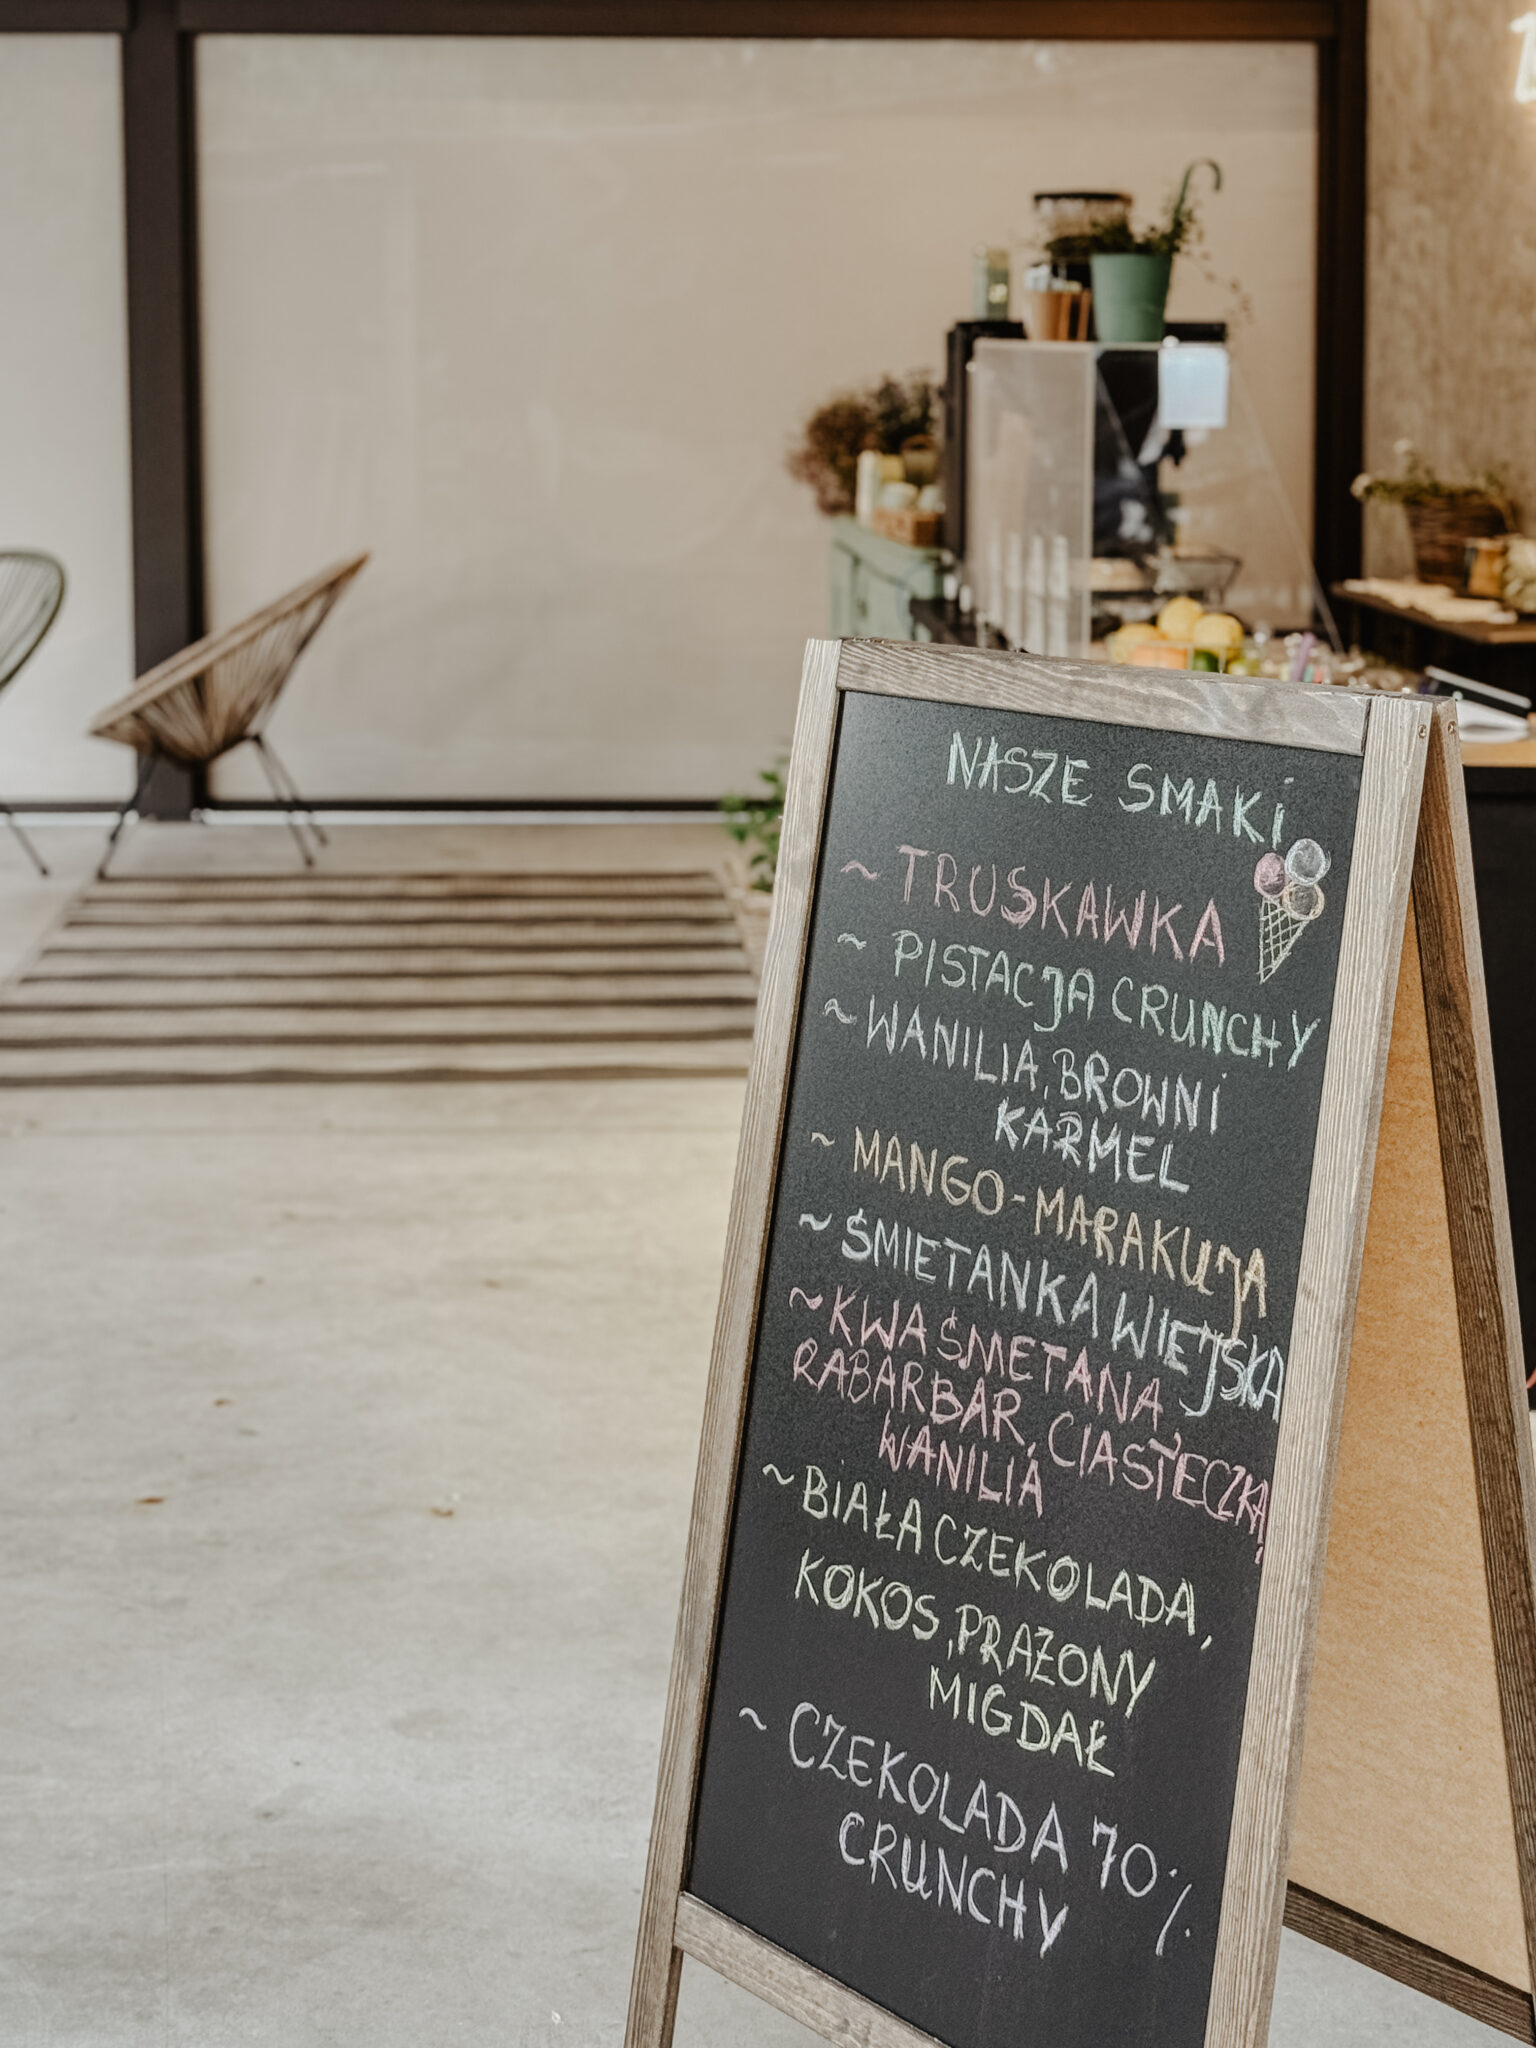 NASZE SMAKI
~ TRUSKAWKA
~ PISTACJA CRUNCHY
~ WANILIA, BROWNI
KARMEL
~ MANGO-MARAKUJA
~ ŚMIETANKA WIEJSKA
~ KWAŚMETANA,
RABARBAR, CIASTECZKA,
WANILIA
~ BIAŁA CZEKOLADA,
KOKOS, PRAŻONY
MIGDAŁ
~ CZEKOLADA 70%
CRUNCHY